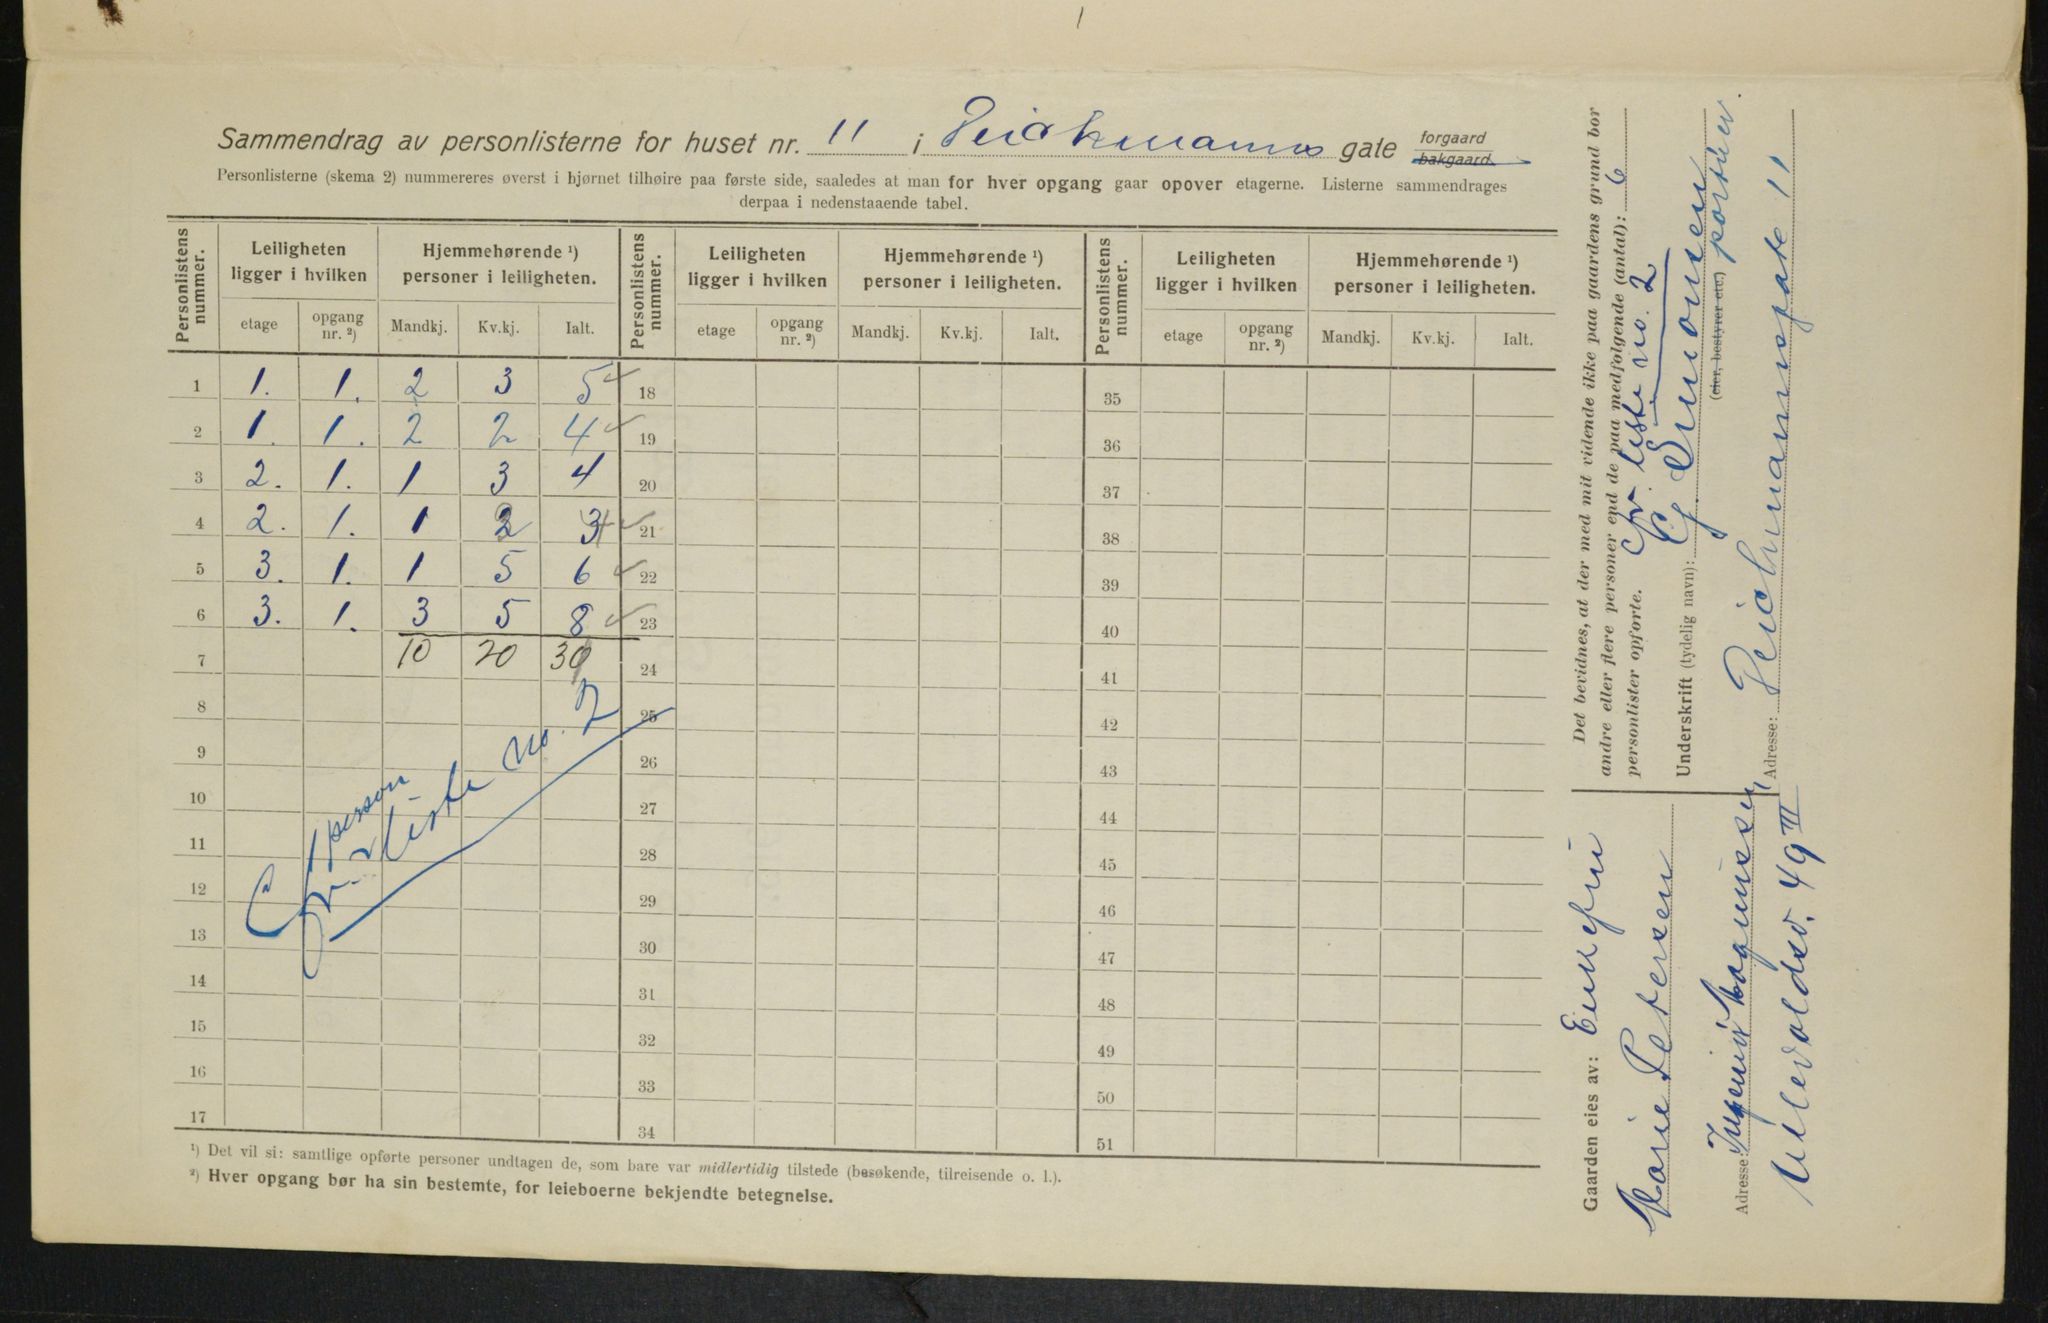 Sammendrag av personlisterne for huset nr. 11 i Deichmanns gate forgaard bakgaard.
Personlisterne (skema 2) nummereres øverst i hjørnet tilhøire paa første side, saaledes at man for hver opgang gaar opover etagerne. Listerne sammendrages
derpaa i nedenstaaende tabel.
Personlistens nummer. Leiligheten ligger i hvilken Hjemmehørende ¹) personer i leiligheten. Personlistens nummer. Leiligheten ligger i hvilken Hjemmehørende ¹) personer i leiligheten. Personlistens nummer. Leiligheten ligger i hvilken Hjemmehørende ¹) personer i leiligheten.
etage opgang nr. ²) Mandkj. Kv.kj. Ialt. etage opgang nr. ²) Mandkj. Kv.kj. Ialt. etage opgang nr. ²) Mandkj. Kv.kj. Ialt.
1 1. 1. 2 3 5 18 35
2 1. 1. 2 2 4 19 36
3 2. 1. 1 3 4 20 37
4 2. 1. 1 2 3 21 38
5 3. 1. 1 5 6 22 39
6 3. 1. 3 5 8 23 40
7 10 20 30 24 41
8 25 42
9 26 43
10 27 44
11 28 45
12 29 46
13 30 47
14 31 48
15 32 49
16 33 50
17 34 51
1 person
Cfr. liste no. 2
¹) Det vil si: samtlige opførte personer undtagen de, som bare var midlertidig tilstede (besøkende, tilreisende o. l.).
²) Hver opgang bør ha sin bestemte, for leieboerne bekjendte betegnelse.
Det bevidnes, at der med mit vidende ikke paa gaardens grund bor
andre eller flere personer end de paa medfølgende (antal): 6
personlister opførte. Cfr. liste no. 2
Underskrift (tydelig navn): G. Simonsen
(eier, bestyrer etc.) portier.
Adresse: Deichmannsgate 11
Gaarden eies av: Enkefru
Marie Petersen
Adresse: Ingeniør Magnussen
Ullevoldsv. 49 III